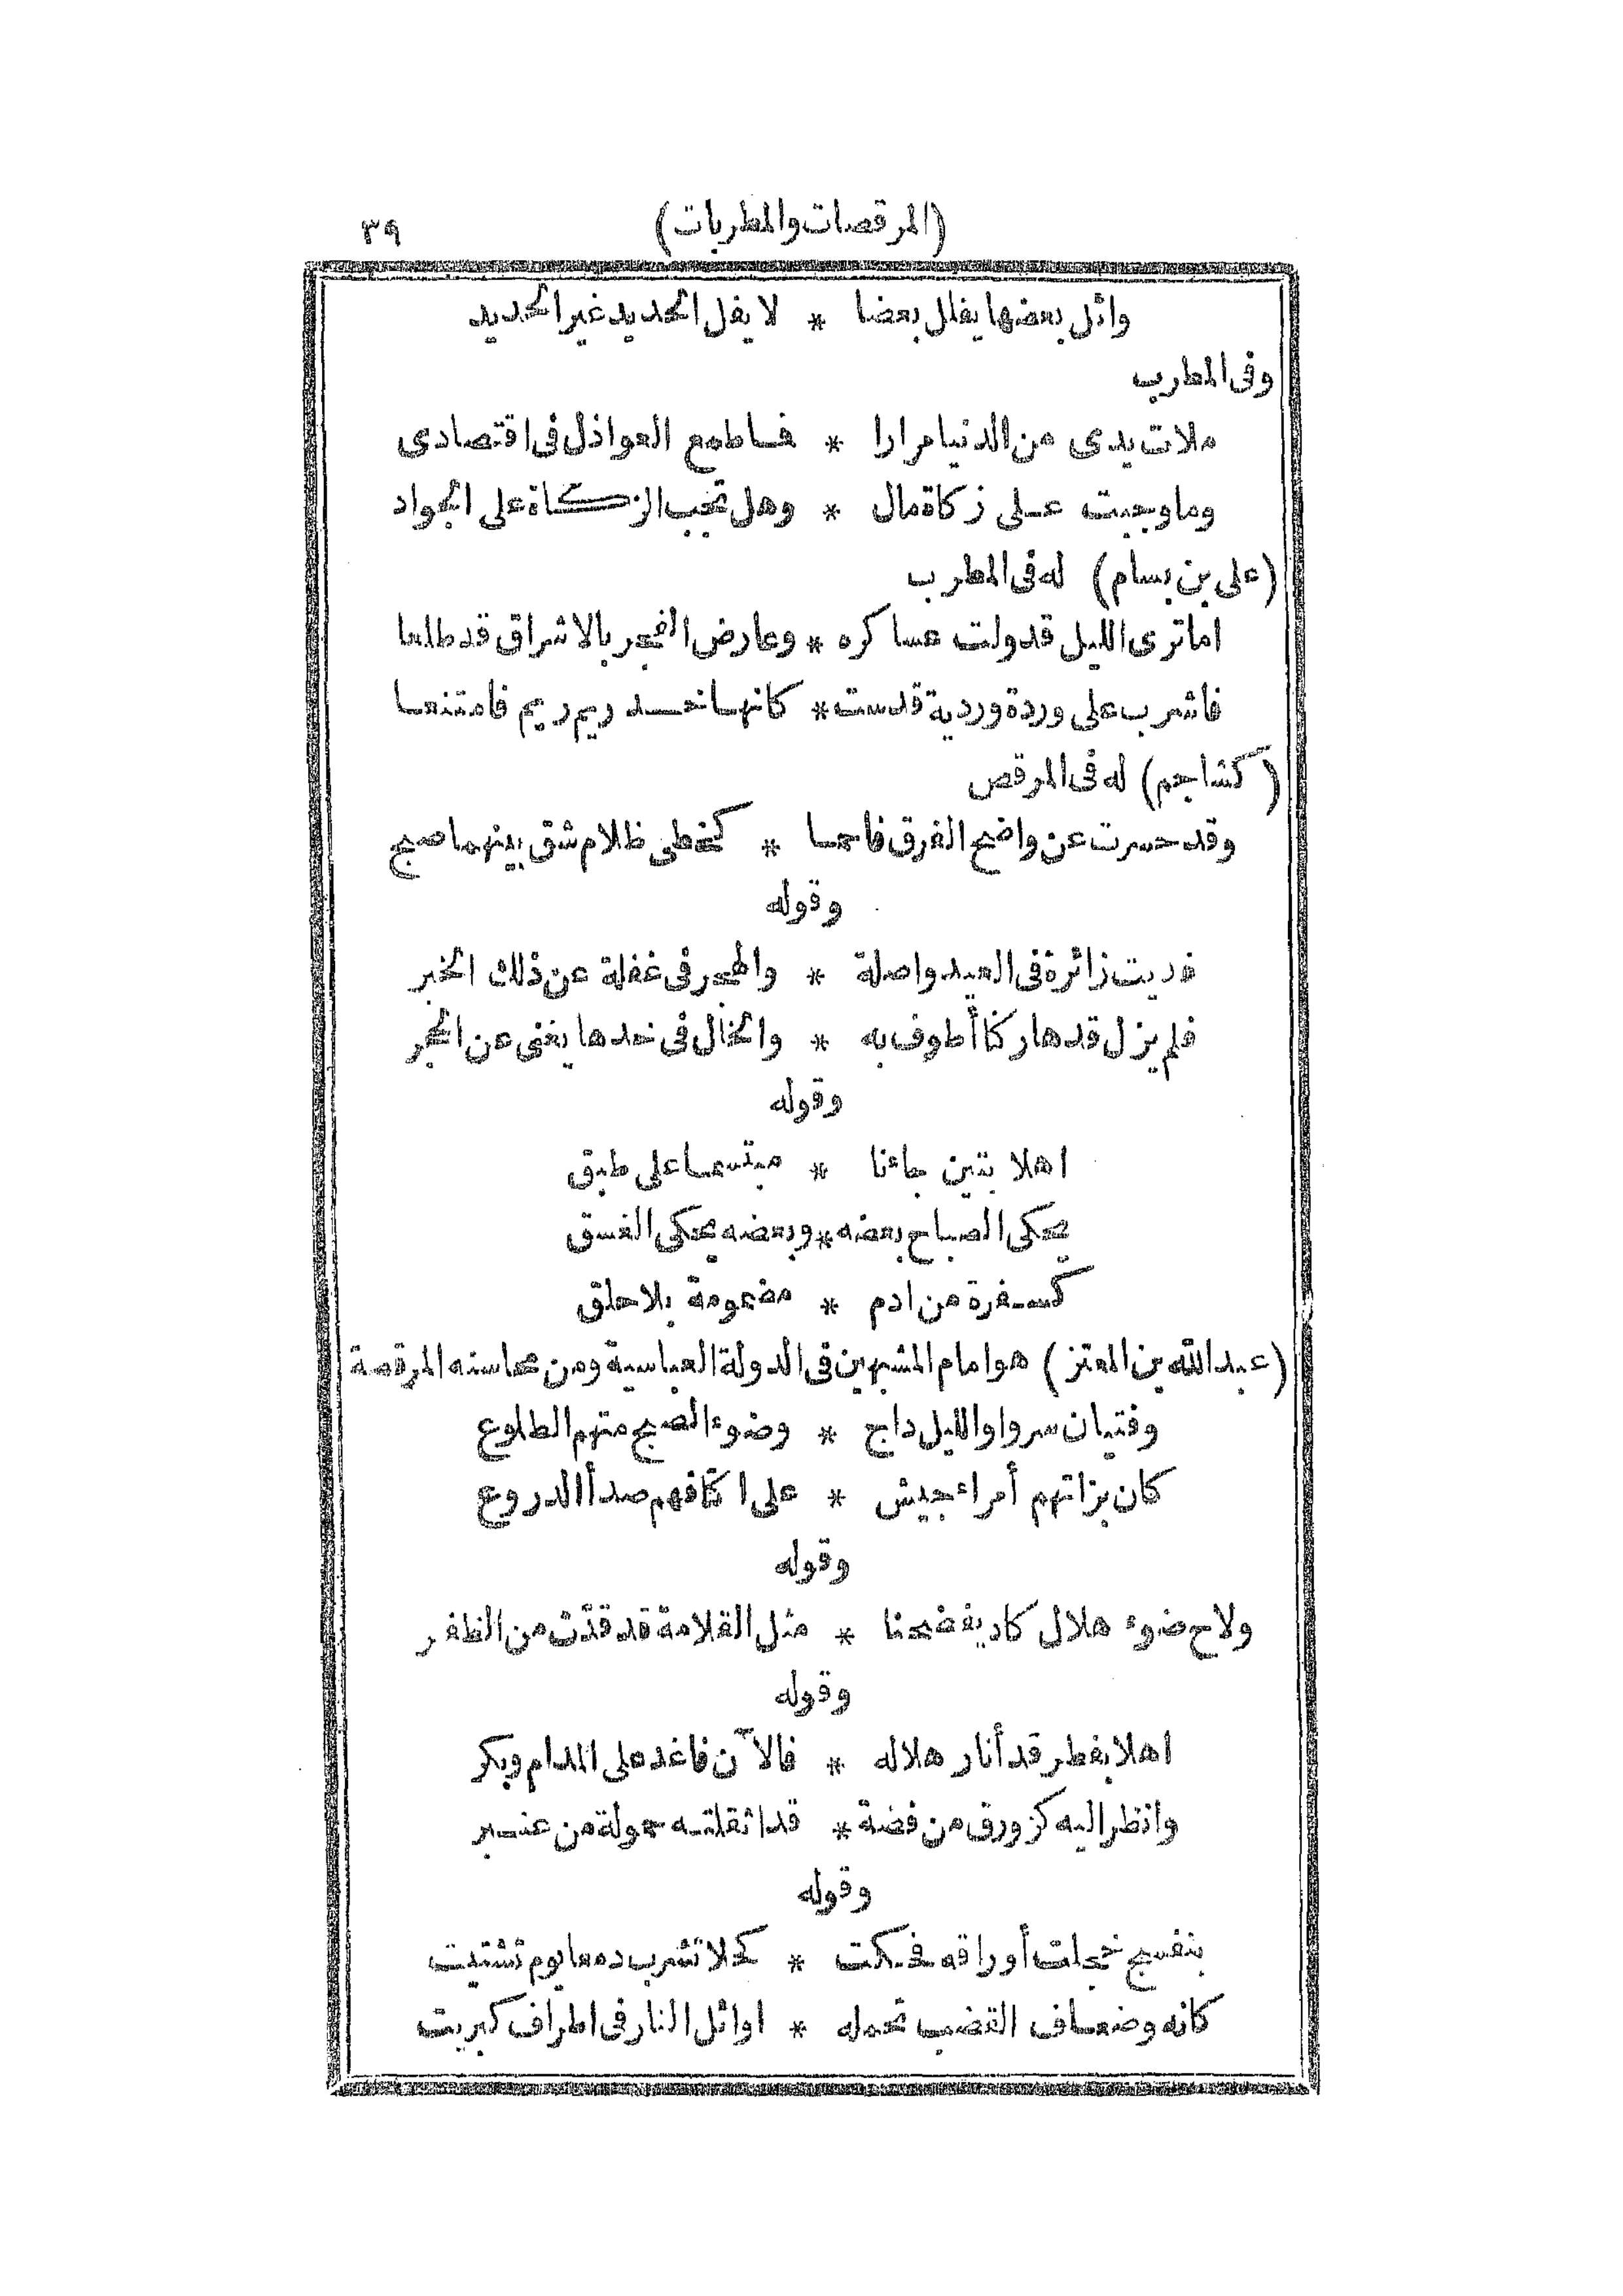 (المرقصات والمطربات) ٣٩
وائل بعضها يفلل بعضا * لا يفل الحديد غير الحديد
وفى المطرب
ملات يدى من الدنيا مرارا * فما طمع العواذل فى اقتصادى
وما وجبت على زكاة مال * وهل تجب الزكاة على الجواد
(على بن بسام) له فى المطرب
اما ترى الليل قد ولت عساكره * وعارض الفجر بالاشراق قد طلعا
فاشرب على وردة وردية قدمت * كانها خد ريم ريم فامتنعا
(كشاجم) له فى المرقص
وقد حسرت عن واضح الفرق فاحما * كخطى ظلام شق بينهما صبح
وقوله
فديت زائرة فى العيد واصلة * والهجر فى غفلة عن ذلك الخبر
فلم يزل قدها ركنا أطوف به * والخال فى خدها يغنى عن الحجر
وقوله
اهلا بتين جاءنا * مبتسما على طبق
يحكى الصباح بعضه * وبعضه يحكى الغسق
كسفرة من ادم * مضمومة بلا حلق
(عبد الله بن المعتز) هو امام المشبهين فى الدولة العباسية ومن محاسنه المرقصة
وفتيان سروا والليل داج * وضوء الصبح متهم الطلوع
كان بزاتهم أمراء جيش * على اكتافهم صدأ الدروع
وقوله
ولاح ضوء هلال كاد يفضحنا * مثل القلامة قد قدّت من الظفر
وقوله
اهلا بفطر قد أنار هلاله * فالآن فاغد على المدام وبكر
وانظر اليه كزورق من فضة * قد اثقلته حمولة من عنبر
وقوله
بنفسج خجلت أوراقه فحكت * كحلا تشرب دمعا يوم تشتيت
كانه وضعاف القضب تحمله * اوائل النار فى اطراف كبريت